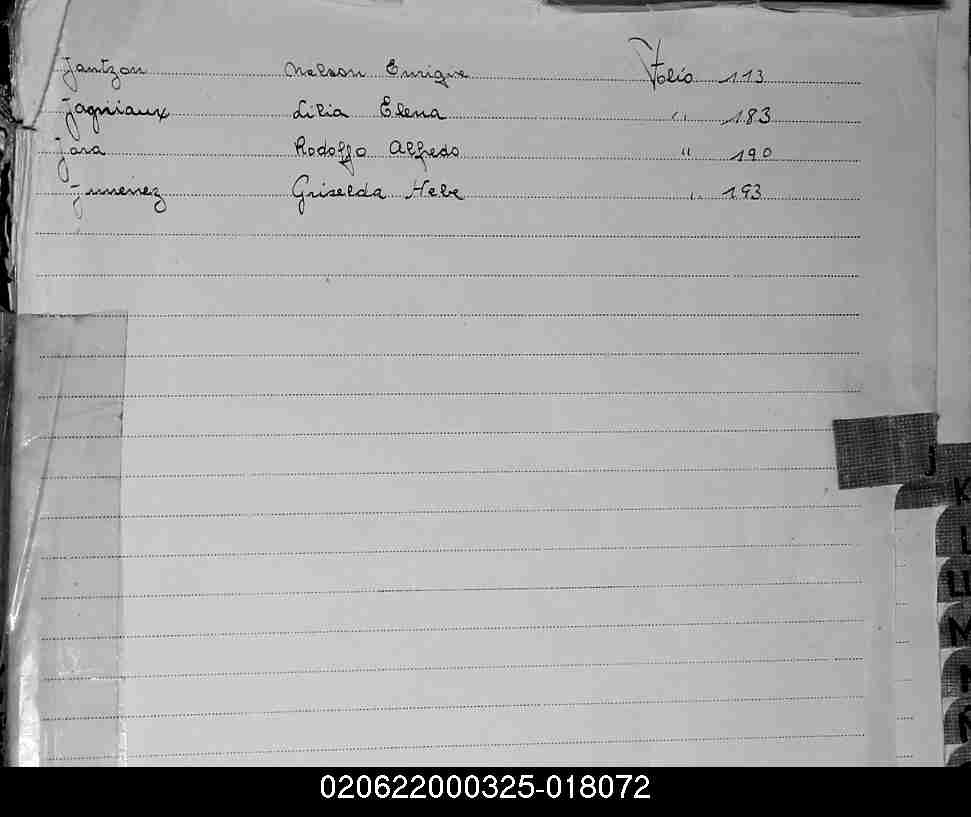 Jantzon Nelson Enrique Folio 113
Jagniaux Lilia Elena " 183
Jara Rodolfo Alfredo " 190
Jimenez Griselda Hebe " 193
J
K
L
LL
M
N
Ñ
020622000325-018072